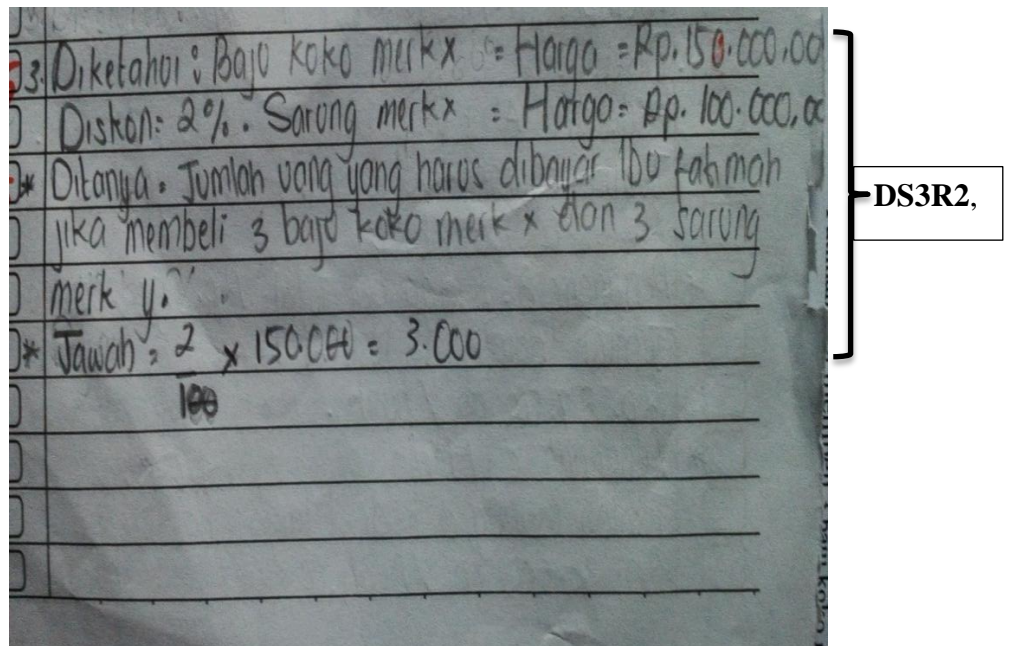 3. Diketahui : Baju koko merk x = Harga = Rp. 150.000,00
Diskon = 2%. Sarung merk x = Harga = Rp. 100.000,00
* Ditanya = Jumlah uang yang harus dibayar Ibu fatimah
jika membeli 3 baju koko merk x dan 3 sarung
merk y.
* Jawab = 2/100 x 150.000 = 3.000
DS3R2,